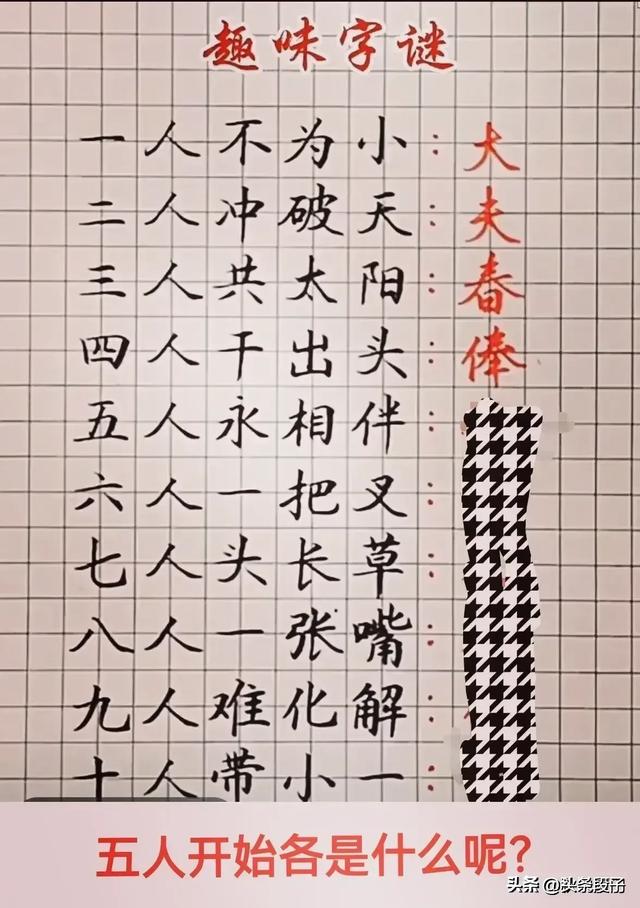 趣味字谜
一人不为小:大
二人冲破天:夫
三人共太阳:春
四人干出头:俸
五人永相伴:
六人一把叉:
七人头长草:
八人一张嘴:
九人难化解:
十人带小一:
五人开始各是什么呢?
头条 @头条段子